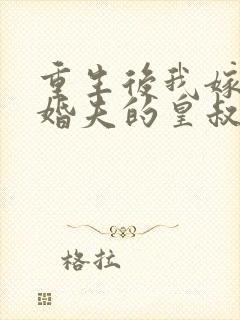 重生後我嫁
婚夫的皇叔
格拉